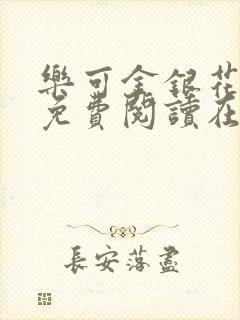 樂可金銀花
免費閱讀在
長安落盡